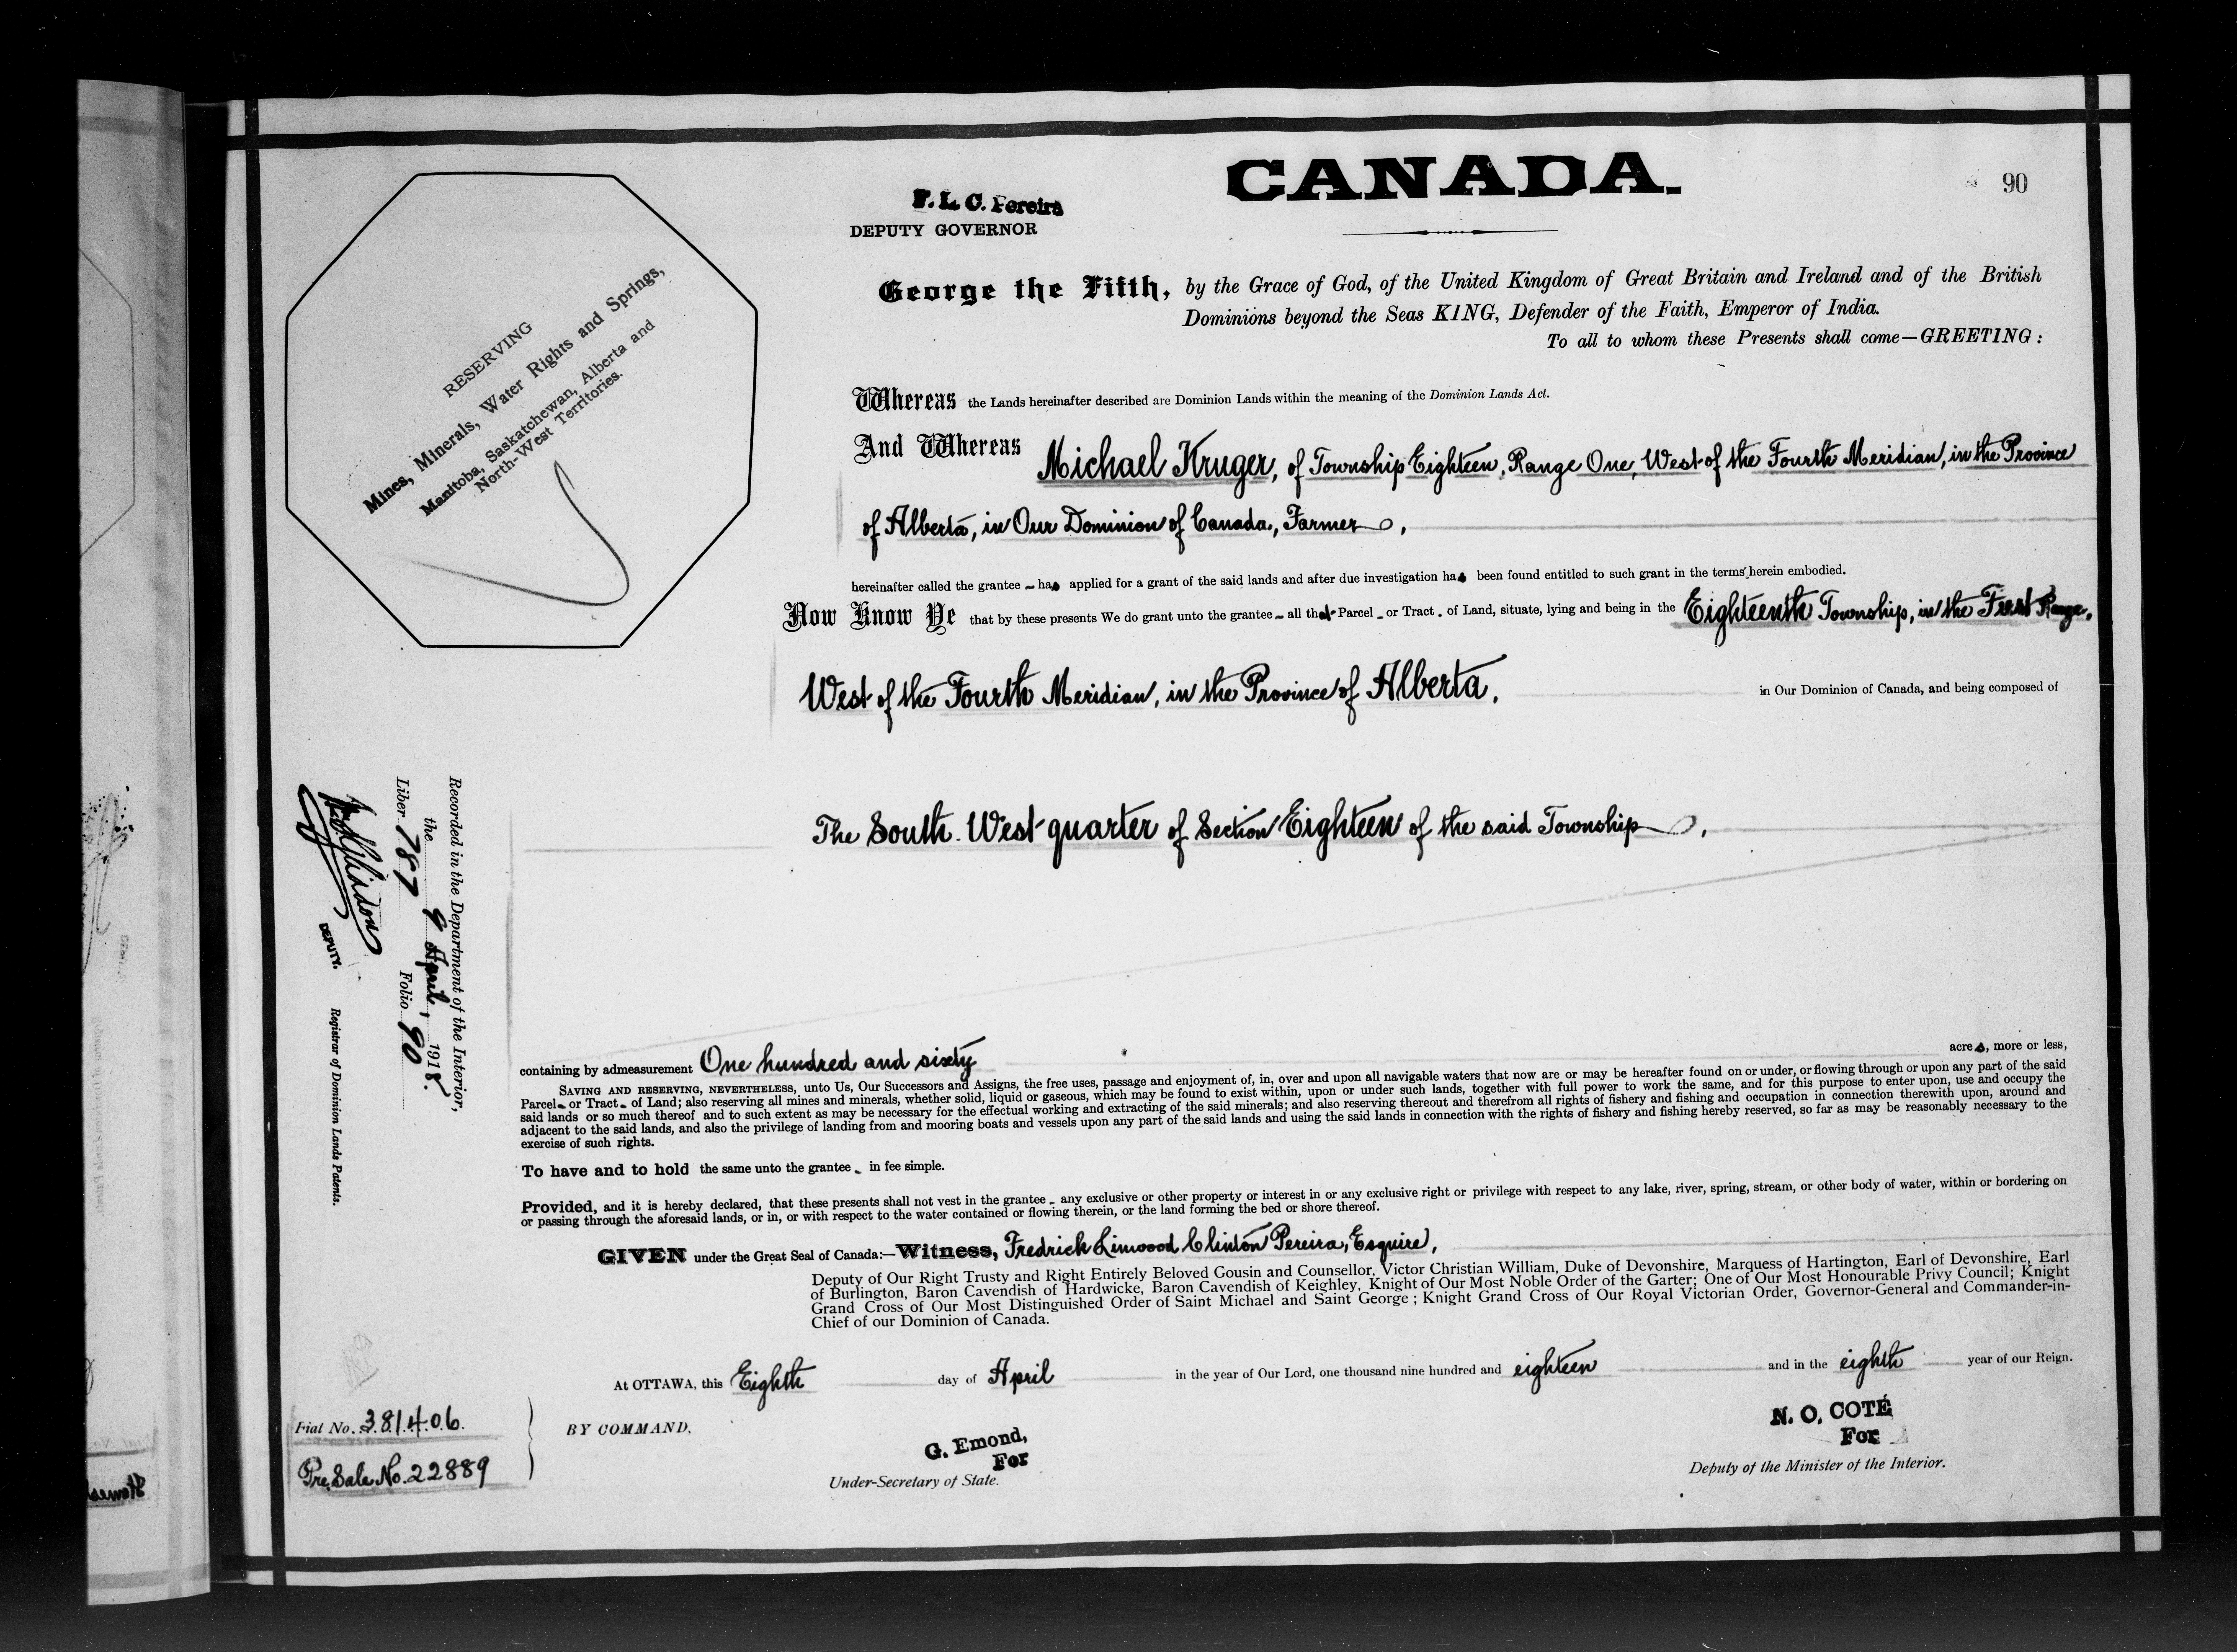 CANADA.
90
F. L. C. Pereira
DEPUTY GOVERNOR
RESERVING
Mines, Minerals, Water Rights and Springs,
Manitoba, Saskatchewan, Alberta and
North-West Territories.
George the Fifth, by the Grace of God, of the United Kingdom of Great Britain and Ireland and of the British
Dominions beyond the Seas KING, Defender of the Faith, Emperor of India.
To all to whom these Presents shall come—GREETING:
Whereas the Lands hereinafter described are Dominion Lands within the meaning of the Dominion Lands Act.
And Whereas Michael Kruger, of Township Eighteen, Range One, West of the Fourth Meridian, in the Province
of Alberta, in Our Dominion of Canada, Farmer,
hereinafter called the grantee has applied for a grant of the said lands and after due investigation has been found entitled to such grant in the terms herein embodied.
Now Know Ye that by these presents We do grant unto the grantee all that Parcel or Tract of Land, situate, lying and being in the Eighteenth Township, in the First Range,
West of the Fourth Meridian, in the Province of Alberta, in Our Dominion of Canada, and being composed of
The South West quarter of Section Eighteen of the said Township,
containing by admeasurement One hundred and sixty acres, more or less,
SAVING AND RESERVING, NEVERTHELESS, unto Us, Our Successors and Assigns, the free uses, passage and enjoyment of, in, over and upon all navigable waters that now are or may be hereafter found on or under, or flowing through or upon any part of the said
Parcel or Tract of Land; also reserving all mines and minerals, whether solid, liquid or gaseous, which may be found to exist within, upon or under such lands, together with full power to work the same, and for this purpose to enter upon, use and occupy the
said lands or so much thereof and to such extent as may be necessary for the effectual working and extracting of the said minerals; and also reserving thereout and therefrom all rights of fishery and fishing and occupation in connection therewith upon, around and
adjacent to the said lands, and also the privilege of landing from and mooring boats and vessels upon any part of the said lands and using the said lands in connection with the rights of fishery and fishing hereby reserved, so far as may be reasonably necessary to the
exercise of such rights.
To have and to hold the same unto the grantee in fee simple.
Provided, and it is hereby declared, that these presents shall not vest in the grantee any exclusive or other property or interest in or any exclusive right or privilege with respect to any lake, river, spring, stream, or other body of water, within or bordering on
or passing through the aforesaid lands, or in, or with respect to the water contained or flowing therein, or the land forming the bed or shore thereof.
GIVEN under the Great Seal of Canada:—Witness, Fredrick Linwood Clinton Pereira, Esquire,
Deputy of Our Right Trusty and Right Entirely Beloved Gousin and Counsellor, Victor Christian William, Duke of Devonshire, Marquess of Hartington, Earl of Devonshire, Earl
of Burlington, Baron Cavendish of Hardwicke, Baron Cavendish of Keighley, Knight of Our Most Noble Order of the Garter; One of Our Most Honourable Privy Council; Knight
Grand Cross of Our Most Distinguished Order of Saint Michael and Saint George; Knight Grand Cross of Our Royal Victorian Order, Governor-General and Commander-in-
Chief of our Dominion of Canada.
At OTTAWA, this Eighth day of April in the year of Our Lord, one thousand nine hundred and eighteen and in the eighth year of our Reign.
BY COMMAND,
G. Emond,
For
Under-Secretary of State.
N. O. COTÉ
For
Deputy of the Minister of the Interior.
Fiat No. 381406.
Pre. Sale No. 22889
Recorded in the Department of the Interior,
the 9 April, 1918.
Liber 787 Folio 90
DEPUTY.
Registrar of Dominion Lands Patents.